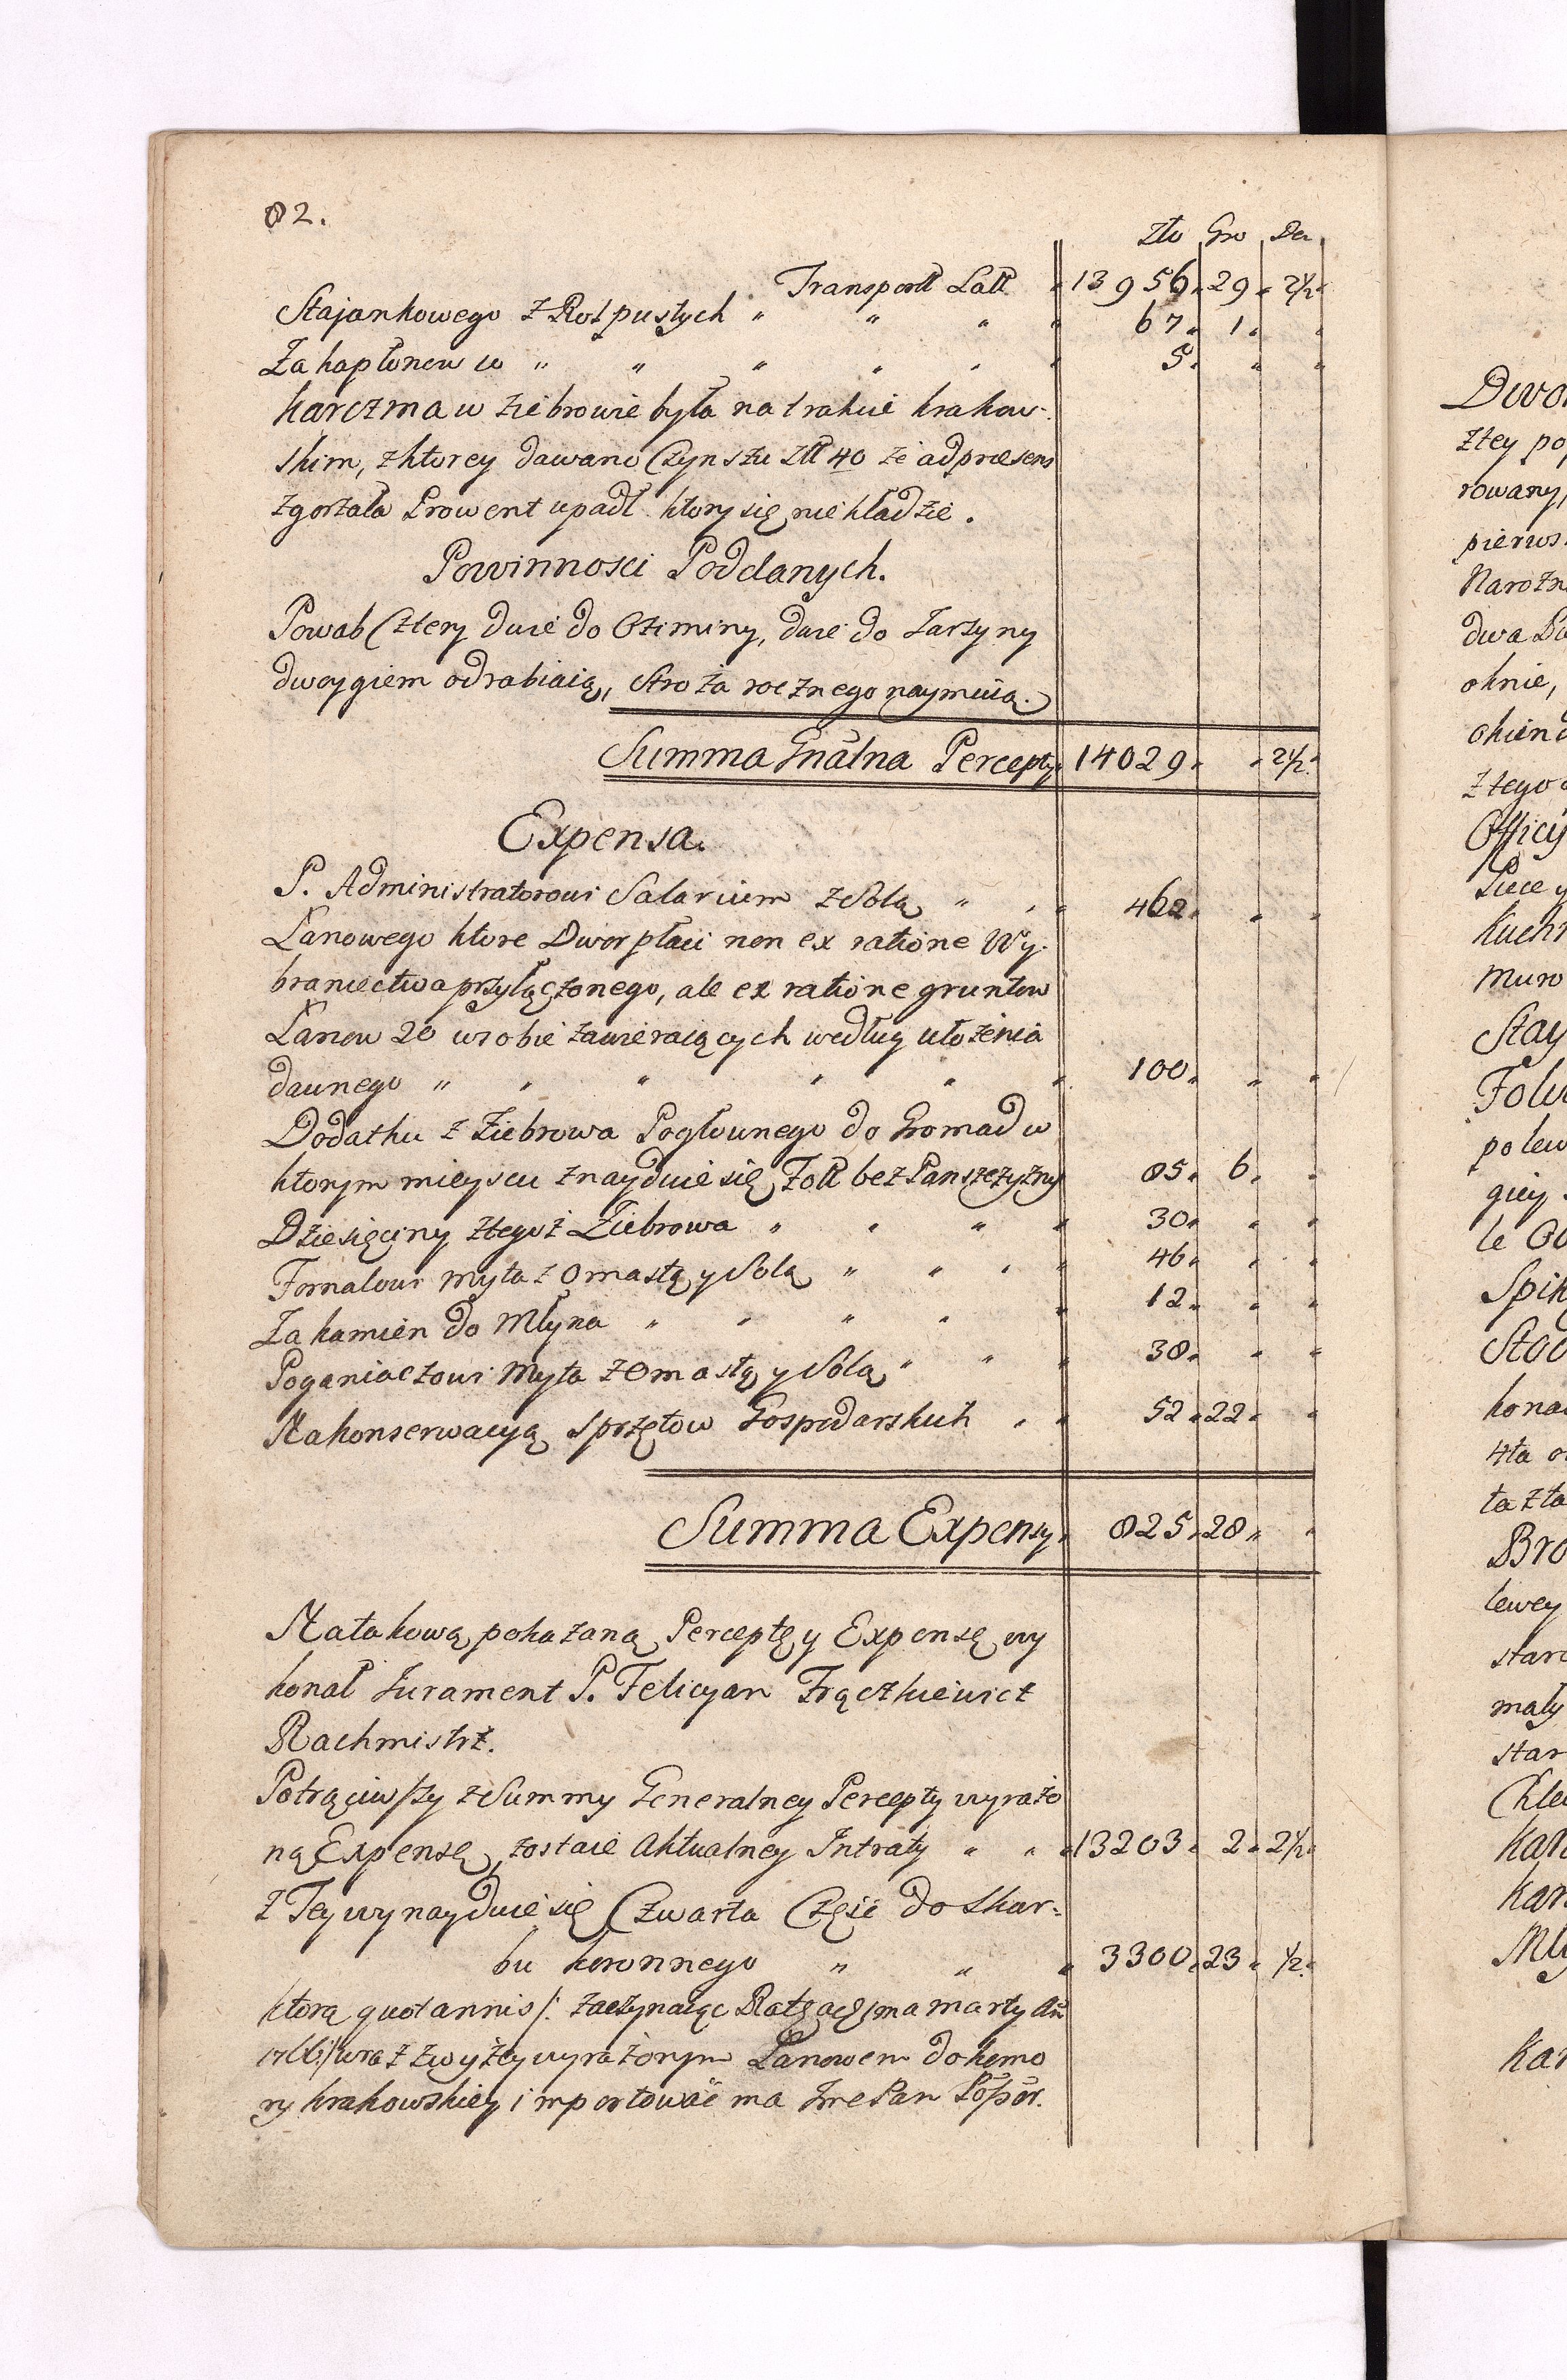 82.
Zło Gro De.
Transportt Latt " 13956. 29. 2½.
Stajankowego z Rol pustych " " " " 67. 1. "
Za kapłonow 10 " " " " " " 5. " "
karczma w Ziebrowie była na trakcie krakow-
skim, z ktorey dawano Czynszu Złł 40 że ad præsens
zgorzała Prowent upadł ktory się nie kładzie.
Powinnosci Poddanych.
Powab Cztery dwie do Oziminy, dwie do Jarzyny
dwoygiem odrabiaią, Stroża rocznego naymuią.
Summa Gnãlna Percepty 14029. " 2½.
Expensa.
P. Administratorowi Salarium z Solą " " " 462. " "
Łanowego ktore Dwor płaci non ex ratione Wy-
braniectwa przyłączonego, ale ex ratione gruntow
Łanow 20 w sobie zawieraiących według ułożenia
dawnego " " " " " " 100. " "
Dodatku z Ziebrowa Pogłownego do Gromad w
ktorym mieyscu znayduie się Folł bez Panszczyzny 85. 6. "
Dziesięciny z tegoż Ziebrowa " " " " 30. " "
Fornalowi myta z Omastą y Solą " " " " 46. " "
Za kamien do Młyna " " " " " 12. " "
Poganiaczowi Myta z Omastą y Solą " " " 38. " "
Na konserwacyą Sprzętow Gospodarskich " " 52. 22. "
Summa Expensy. 825. 28. "
Na takową pokazaną Perceptę y Expensę wy
konał Jurament P. Felicyan Frączkiewicz
Rachmistrz.
Potrąciwszy z Summy Generalney Percepty wyrażo
ną Expensę, zostaie Aktualney Intraty " " 13203. 2. 2½.
z Tey wynayduie się Czwarta Częsc do Skar-
bu koronnego " " " 3300. 23. ½.
ktorą quotannis /: zaczynaiąc Ratę a 1ma marty Añ
1766 :/ wraz z wyżey wyrażonym Łanowem do komo
ry krakowskiey importowac ma Jmc Pan Poẞor.